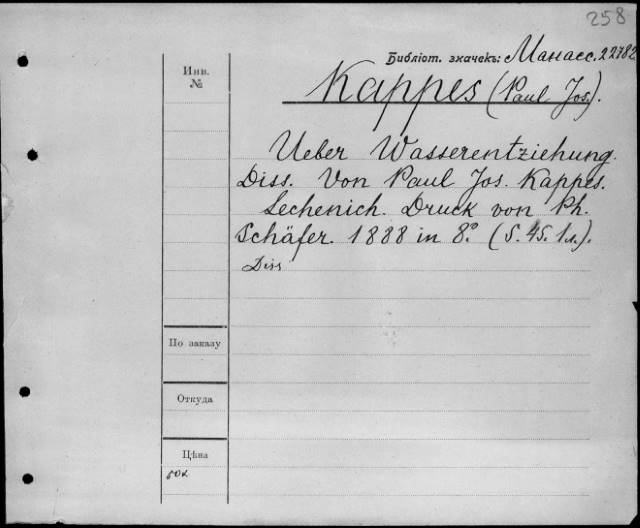 258
Библіот. значекъ: Манасс. 22782
Инв. №
Kappes (Paul Jos.).
Ueber Wasserentziehung.
Diss. Von Paul Jos. Kappes.
Lechenich. Druck von Ph.
Schäfer. 1888 in 8.º (S. 45. 1 л.).
Diss
По заказу
Откуда
Цѣна